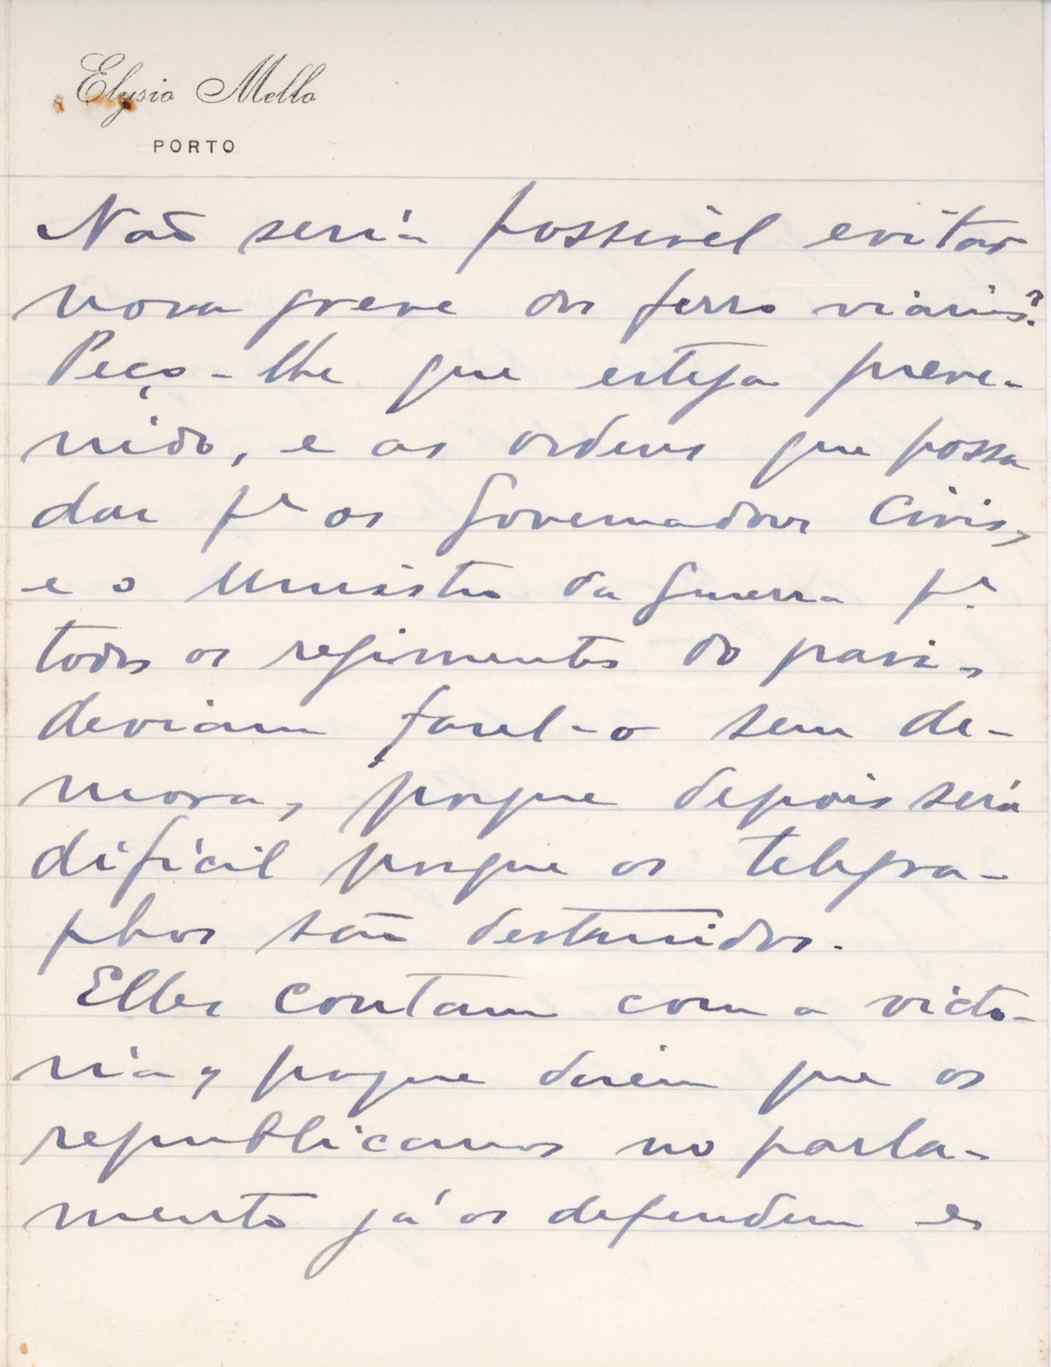 Elysio Mello
PORTO
Não seria possivél evitar
nova greve dos ferro viarios?
Peço-lhe que esteja preve-
nido, e as ordens que possa
dar pª os Governadores Civis,
e o Ministro da Guerra pª
todos os regimentos do paiz -
deviam fazel-o sem de-
mora, porque depois será
dificil porque os telegra-
phos são destruidos.
Elles contam com a victo-
ria, porque dizem que os
republicanos no parla-
mento já os defendem e